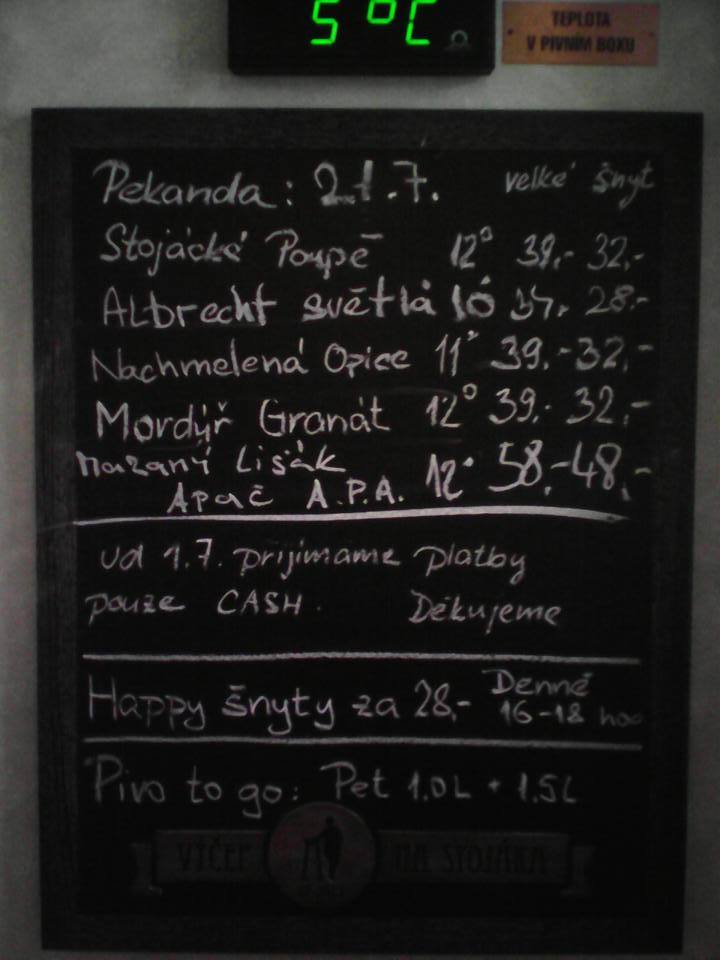 5 °C
TEPLOTA
V PIVNÍM BOXU
Pekanda: 21.7. velké šnyt
Stojácké Poupě 12° 39,- 32,-
Albrecht světlá 10 37,- 28,-
Nachmelená Opice 11° 39,- 32,-
Mordýř Granát 12° 39,- 32,-
Mazaný Lišák
Apač A.P.A. 12° 58,- 48,-
od 1.7. prijímame platby
pouze CASH. Děkujeme
Happy šnyty za 28,- Denně
16-18 hod
Pivo to go: Pet 1.0L + 1.5L
VÝČEP NA STOJÁKA